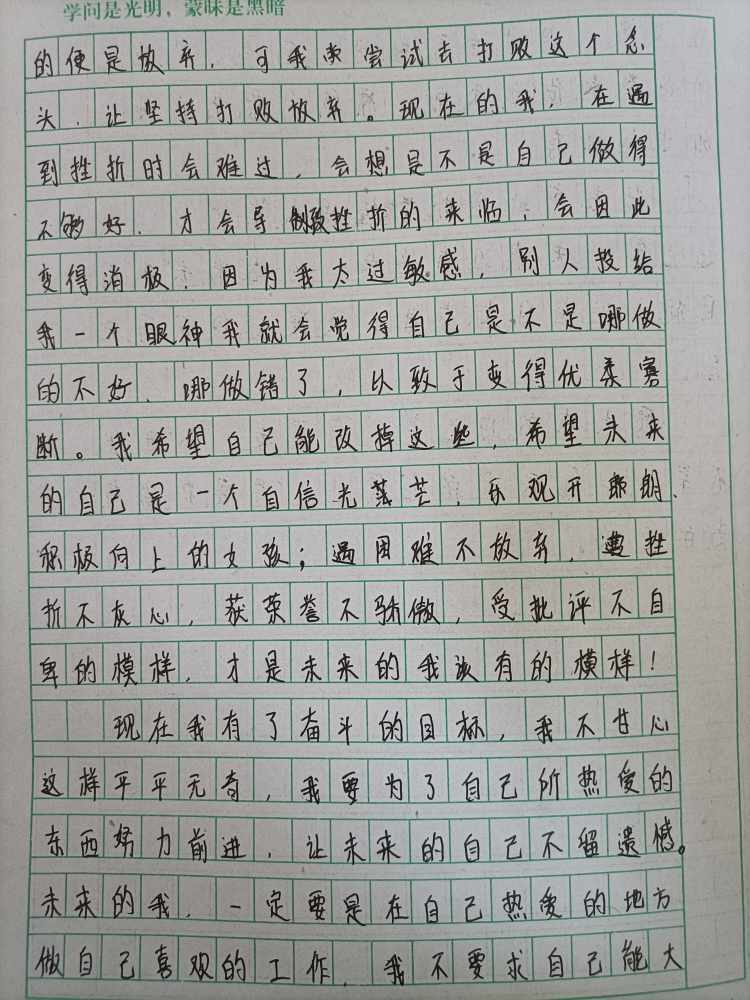 学问是光明，蒙昧是黑暗
的便是放弃，可我要尝试去打败这个念
头，让坚持打败放弃。现在的我，在遇
到挫折时会难过，会想是不是自己做得
不够好，才会导致挫折的来临，会因此
变得消极！因为我太过敏感，别人投给
我一个眼神我就会觉得自己是不是哪做
的不好，哪做错了，以致于变得优柔寡
断。我希望自己能改掉这些，希望未来
的自己是一个自信光芒，乐观开朗，
积极向上的女孩；遇困难不放弃，遭挫
折不灰心，获荣誉不骄傲，受批评不自
卑的模样，才是未来的我该有的模样！
现在我有了奋斗的目标，我不甘心
这样平平无奇，我要为了自己所热爱的
东西努力前进，让未来的自己不留遗憾。
未来的我，一定要是在自己热爱的地方
做自己喜欢的工作，我不要求自己能大